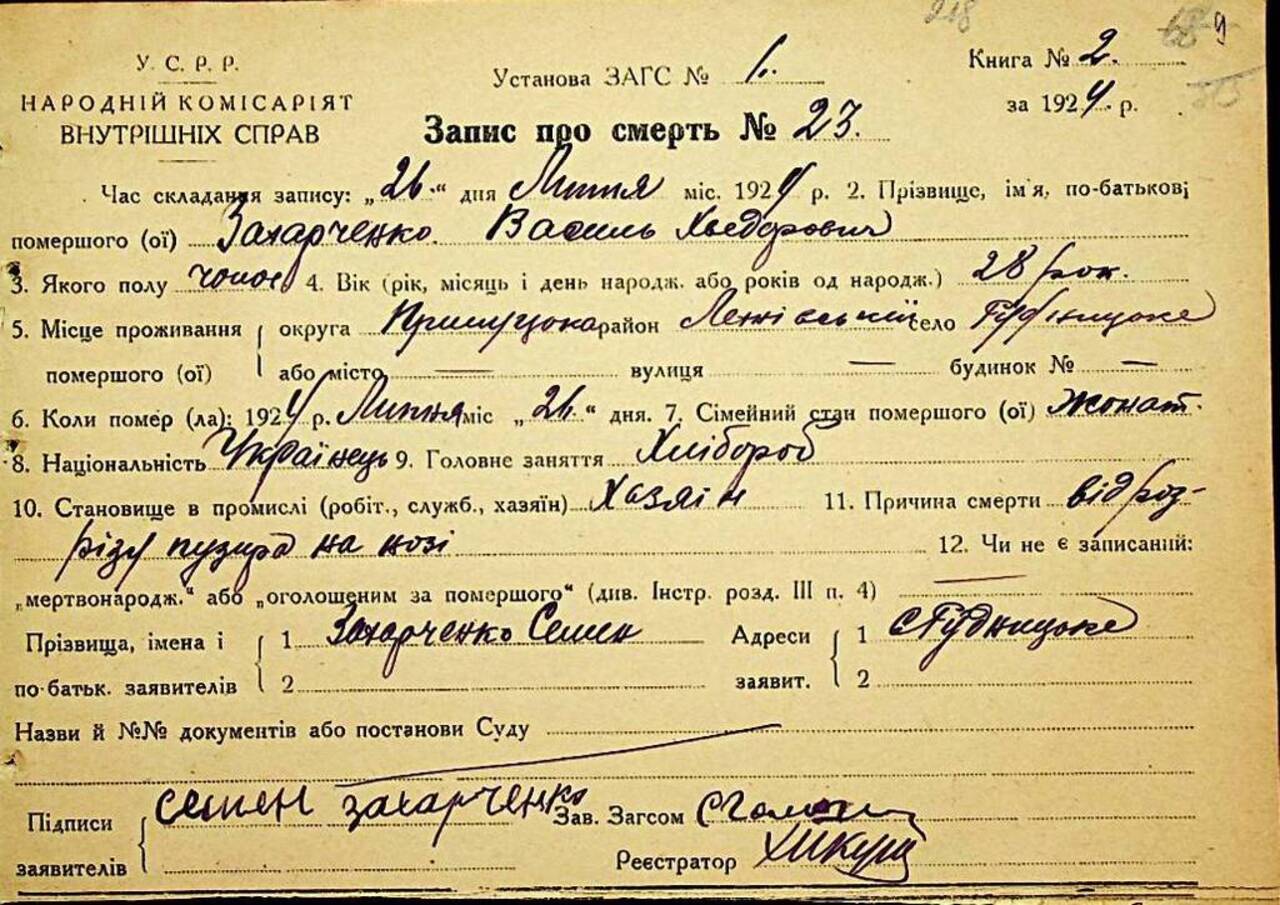 218
9
У. С. Р. Р.
НАРОДНІЙ КОМІСАРІЯТ
ВНУТРІШНІХ СПРАВ
Установа ЗАГС № 1.
Книга № 2.
за 1924 р.
Запис про смерть № 23.
Час складання запису: „26.“ дня Липня міс. 1924 р. 2. Прізвище, ім'я, по-батькові
помершого (ої) Захарченко Василь Хведорович
3. Якого полу чолов 4. Вік (рік, місяць і день народж. або років од народж.) 28 рок.
5. Місце проживання помершого (ої) { округа Прилуцька район село
або місто — вулиця — будинок № —
6. Коли помер (ла): 1924 р. Липня міс „26.“ дня. 7. Сімейний стан помершого (ої) жонат.
8. Національність Українець 9. Головне заняття Хлібороб
10. Становище в промислі (робіт., служб., хазяїн) Хазяін 11. Причина смерти від роз-
різу пузиря на нозі 12. Чи не є записаний:
„мертвонародж.“ або „оголошеним за помершого“ (див. Інстр. розд. III п. 4) —
Прізвища, імена і { 1 Захарченко Семен Адреси { 1
по-батьк. заявителів 2 заявит. 2
Назви й №№ документів або постанови Суду
Підписи { Семен Захарченко Зав. Загсом
заявителів Реєстратор